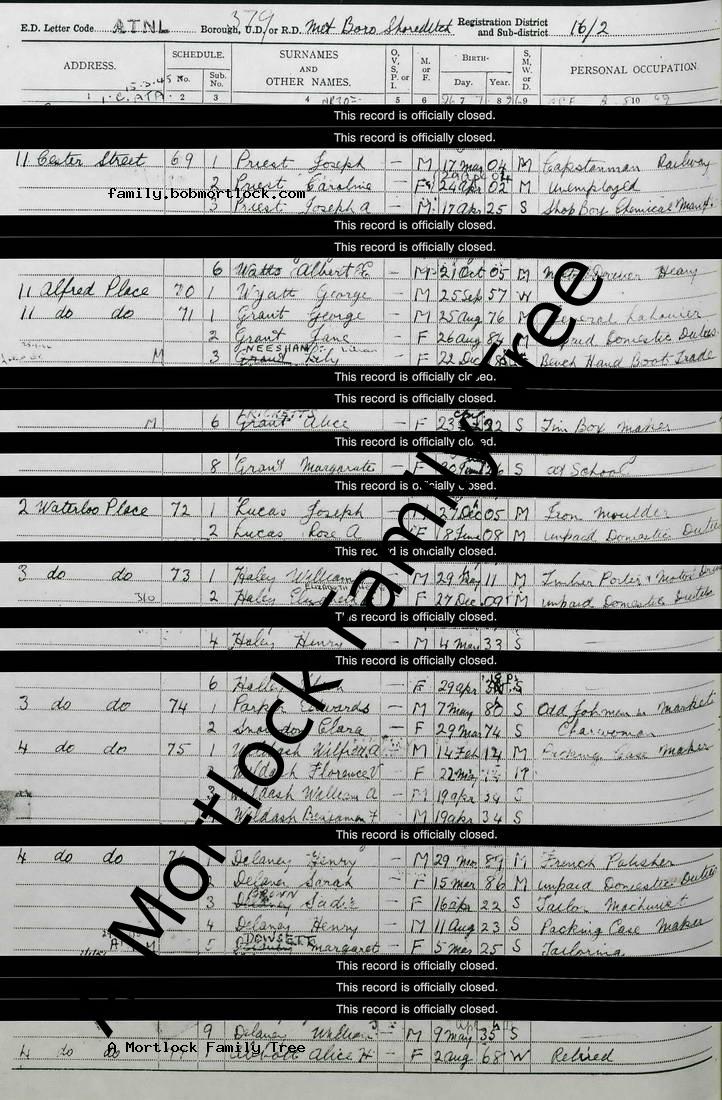 E.D. Letter Code ATNL Borough, U.D., or R.D. Met Boro Shoreditch Registration District and Sub-district 16/2
379
ADDRESS. SCHEDULE. SURNAMES AND OTHER NAMES. O, V, S, P, or I. M. or F. BIRTH- S, M, W, or D. PERSONAL OCCUPATION.
No. Sub. No. Day. Year.
1 2 3 4 5 6 7 8 9 10
This record is officially closed.
This record is officially closed.
11 Cester Street 69 1 Priest Joseph — M 17 May 04 M Capstanman Railway
2 Priest Caroline — F 24 Apr 02 M Unemployed
family.bobmortlock.com
3 Priest Joseph A — M 17 Apr 25 S Shop Boy Chemical Manf
This record is officially closed.
This record is officially closed.
6 Watts Albert — M 21 Oct 05 M Heavy
11 Alfred Place 70 1 Wyatt George — M 25 Sep 57 W
11 do do 71 1 Grant George — M 25 Aug 76 M General Labourer
2 Grant Jane — F 26 Aug 84 M unpaid Domestic Duties
NEESHAN
M 3 Grant Lily — F 22 Dec Bench Hand Boot Trade
This record is officially closed.
This record is officially closed.
CRICKETTS
M 6 Grant Alice — F 23 22 S Tin Box Maker
This record is officially closed.
8 Grant Margarate — F 20 S at School
This record is officially closed.
2 Waterloo Place 72 1 Lucas Joseph — M 27 Dec 05 M Iron Moulder
2 Lucas Rose A — F 18 June 08 M unpaid Domestic Duties
This record is officially closed.
3 do do 73 1 Haley William M 29 May 11 M Timber Porter & Motor Driver
310 2 Haley F 27 Dec 09 M unpaid Domestic Duties
This record is officially closed.
4 Haley Henry M 4 May 33 S
This record is officially closed.
6 Haley — F 29 Apr S
3 do do 74 1 Park Edwards — M 7 May 80 S Odd Job man in Market
2 Clara — F 29 Mar 74 S Charwoman
4 do do 75 1 Woldash Wilfred A — M 14 Feb 14 M Packing Case Maker
Woldash Florence V — F 22 May 14
Woldash William A — M 19 Apr 34 S
Woldash Benjamin F — M 19 Apr 34 S
This record is officially closed.
4 do do 76 1 Delaney Henry — M 29 Mar 89 M French Polisher
2 Delaney Sarah — F 15 Mar 86 M unpaid Domestic Duties
BROWN
3 Delaney Sadie — F 16 Apr 22 S Tailor Machinist
4 Delaney Henry — M 11 Aug 23 S Packing Case Maker
DOWSETT
5 Delaney Margaret — F 5 Mar 25 S Tailoring
This record is officially closed.
This record is officially closed.
This record is officially closed.
9 Delaney William — M 9 May 35 S
4 do do Alice H — F 2 Aug 68 W Retired
A Mortlock Family Tree
A Mortlock Family Tree